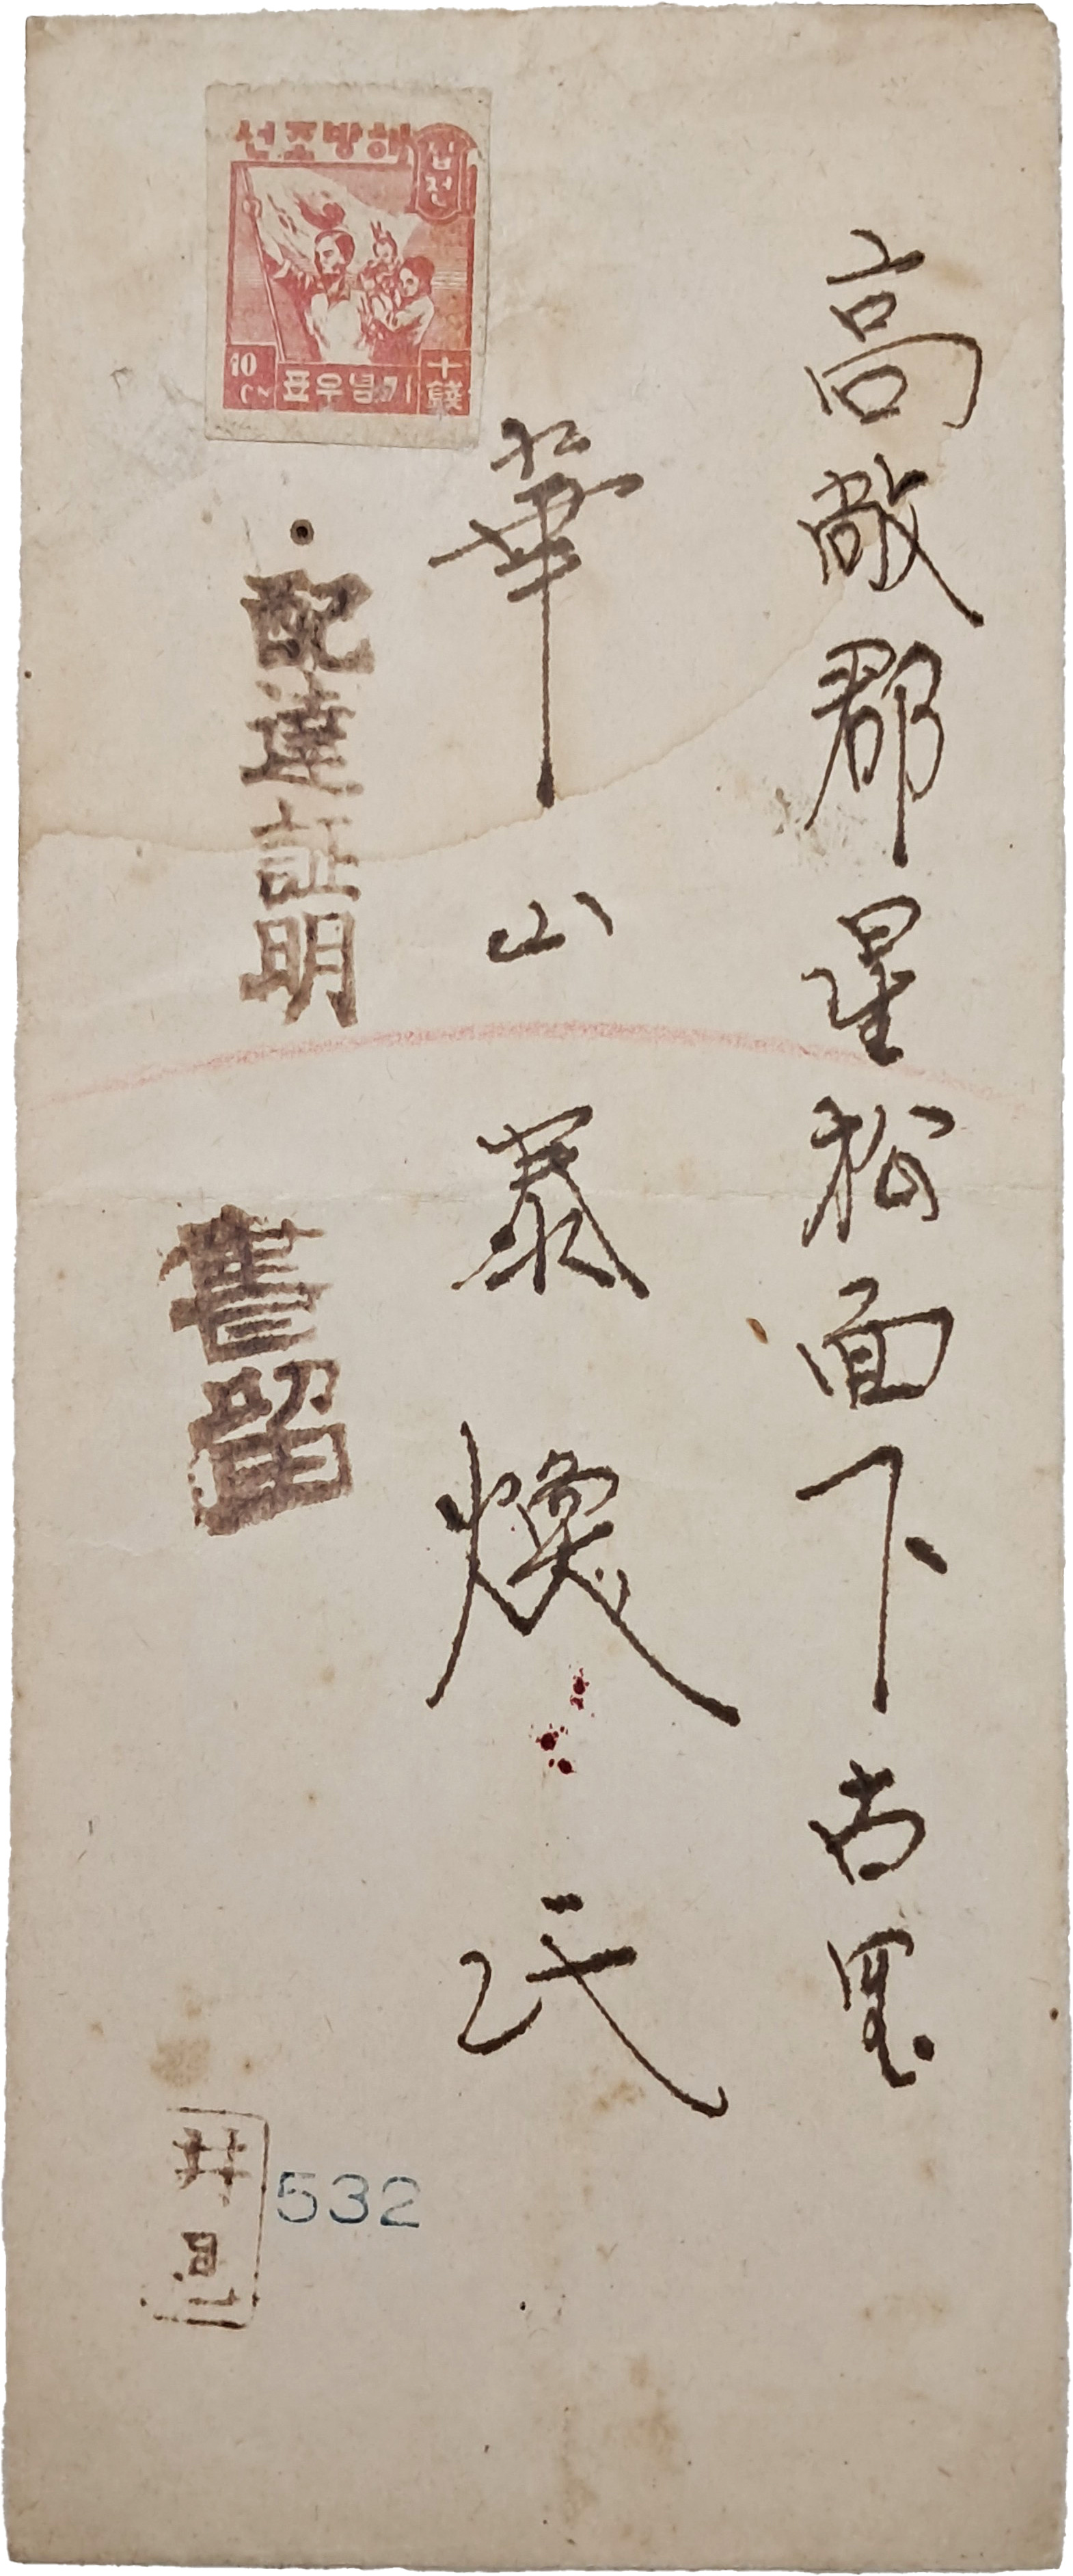 高敞郡星松面下古里
華山泰煥氏
해방조선
십전
10
기념우표
十錢
配達証明
書留
井邑
532